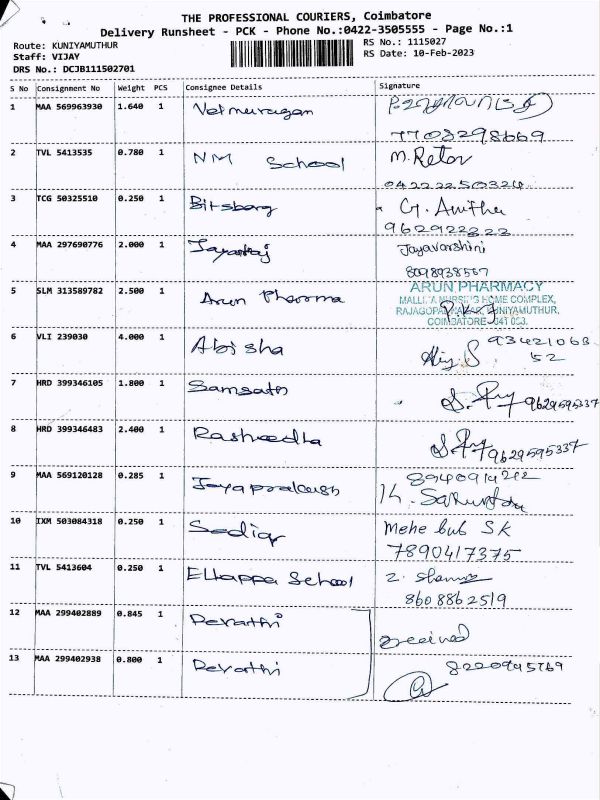 THE PROFESSIONAL COURIERS, Coimbatore
Delivery Runsheet - PCK - Phone No.:0422-3505555 - Page No.:1
Route: KUNIYAMUTHUR RS No.: 1115027
Staff: VIJAY RS Date: 10-Feb-2023
DRS No.: DCJB111502701
S No Consignment No Weight PCS Consignee Details Signature
1 MAA 569963930 1.640 1 Velmurugan
7703298669
2 TVL 5413535 0.780 1 NM School M.
04222250324
3 TCG 50325510 0.250 1 Bitsberg G. Anitha
962922323
4 MAA 297690776 2.000 1 Jayaraj Jayavarshini
8098938567
5 SLM 313589782 2.500 1 Arun Pharma ARUN PHARMACY
NURSING HOME COMPLEX,
KUNIYAMUTHUR,
COIMBATORE
6 VLI 239030 4.000 1 Abisha 93421068
52
7 HRD 399346105 1.800 1 Samsath 9629595337
8 HRD 399346483 2.400 1 Rasheedha 9629595337
9 MAA 569120128 0.285 1 Jayaprakash 8940914212
10 IXM 503084318 0.250 1 Sadiq Mehe bub SK
7890417375
11 TVL 5413604 0.250 1 Ellappa School
8608862519
12 MAA 299402889 0.845 1 Revathi received
13 MAA 299402938 0.800 1 Revathi 8220945769